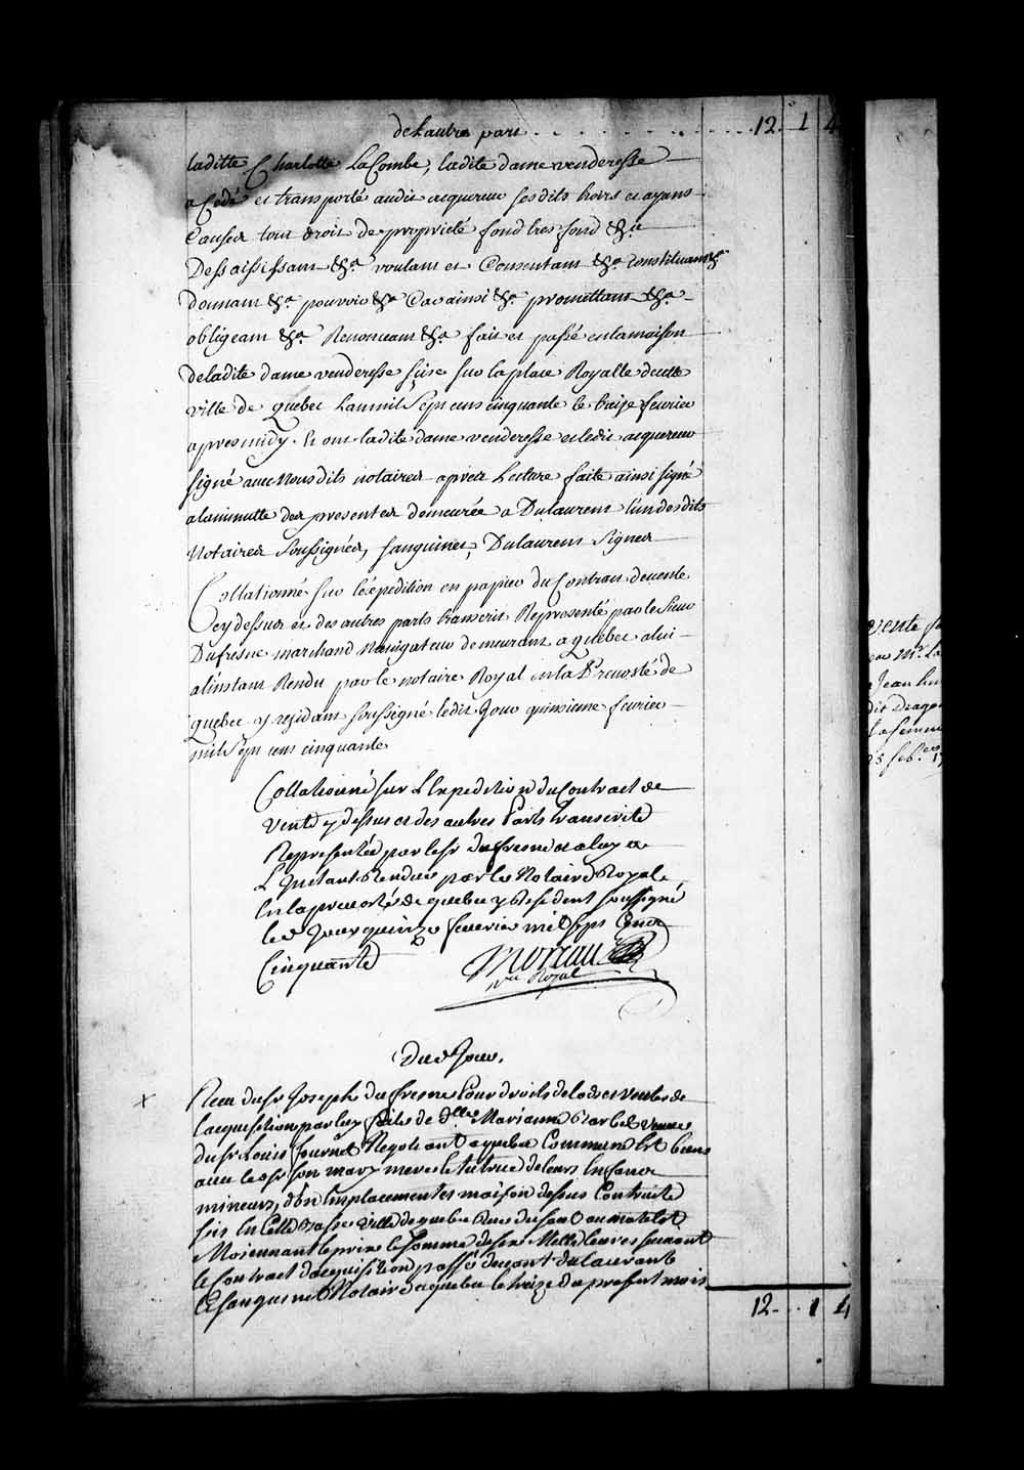 de Lautre part . . . . . . . . . . 12. 1 4
laditte Charlotte LaCombe, ladite dame venderesse
a Cedé et transporté audit acquereur ses dits hoirs et ayans
Causes tout droit de proprieté fond tres fond &a
Dessaisissant &a voulant et Consentant &a Constituant
donnant &a pouvoir &a Car ainsi &a promettant &a
obligeant &a Renonceant &a fait et passé en la maison
de ladite dame venderesse sise sur la place Royalle de cette
ville de quebec Lan mil Sept cens cinquante le treize fevrier
apres midy. Et ont ladite dame venderesse et ledit acquereur
signé avec Nous dits notaires apres Lecture faite ainsi signé
a la minutte des presentes demeurée a Dulaurent l'un des dits
Notaires Soussignés, Sanguinet, Dulaurent Signes
Collationné sur l'expedition en papier du Contrat de vente
cy dessus et des autres parts transcrit Representé par le Sieur
Dufresne marchand Navigateur demeurant a quebec a lui
a l'instant Rendu par le notaire Royal en la Prevosté de
quebec y residant soussigné ledit Jour quinzieme fevrier
mil Sept cens cinquante
Collationné sur L'Expedition du Contract de
Vente cy dessus et des autres Parts transcrite
Representée par le Sr dufresne et a luy a
L'Instant Rendue par le Notaire Royale
En la prevosté de quebec y Resident soussigné
led Jour quinze fevrier mil Sept Cens
Cinquante
Moreau
nre Royal
Dud Jour.
x
Reçu du Sr Joseph dufresne Pour droits de lods et ventes de
l'acquisition par luy faite de dlle Marianne Barbel veuve
du Sr Louis fournel Negotiant a quebec Commune En biens
avec led Sr son mary mere et tutrice de leurs Enfans
mineurs, d'un Emplacement et maison dessus Contruite
sis En Cette Basse ville de quebec Rue du Saut au matelot
Moiennant le prix et somme de six Mille livres suivant
le Contract d'acquisition passé devant dulaurent
et sanguinet Notaire a quebec le treize du present mois
12. . 1 4
vente
Mr La
Jean
dit Drago
sa femme